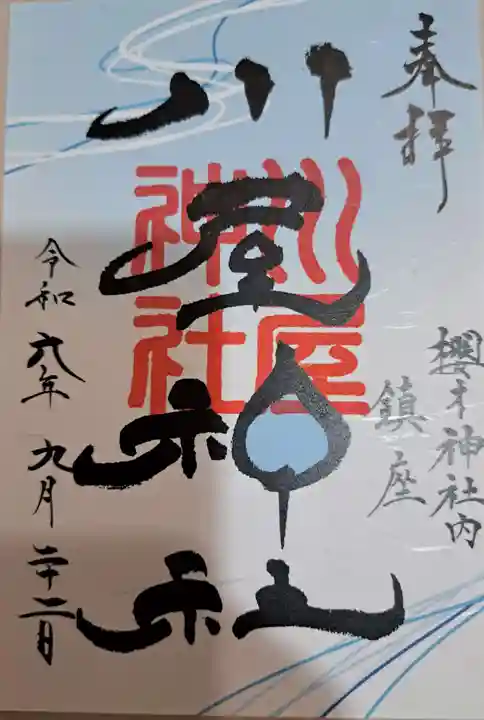 奉拝
櫻木神社内
鎮座
川屋神社
川屋
神社
令和六年九月二十二日